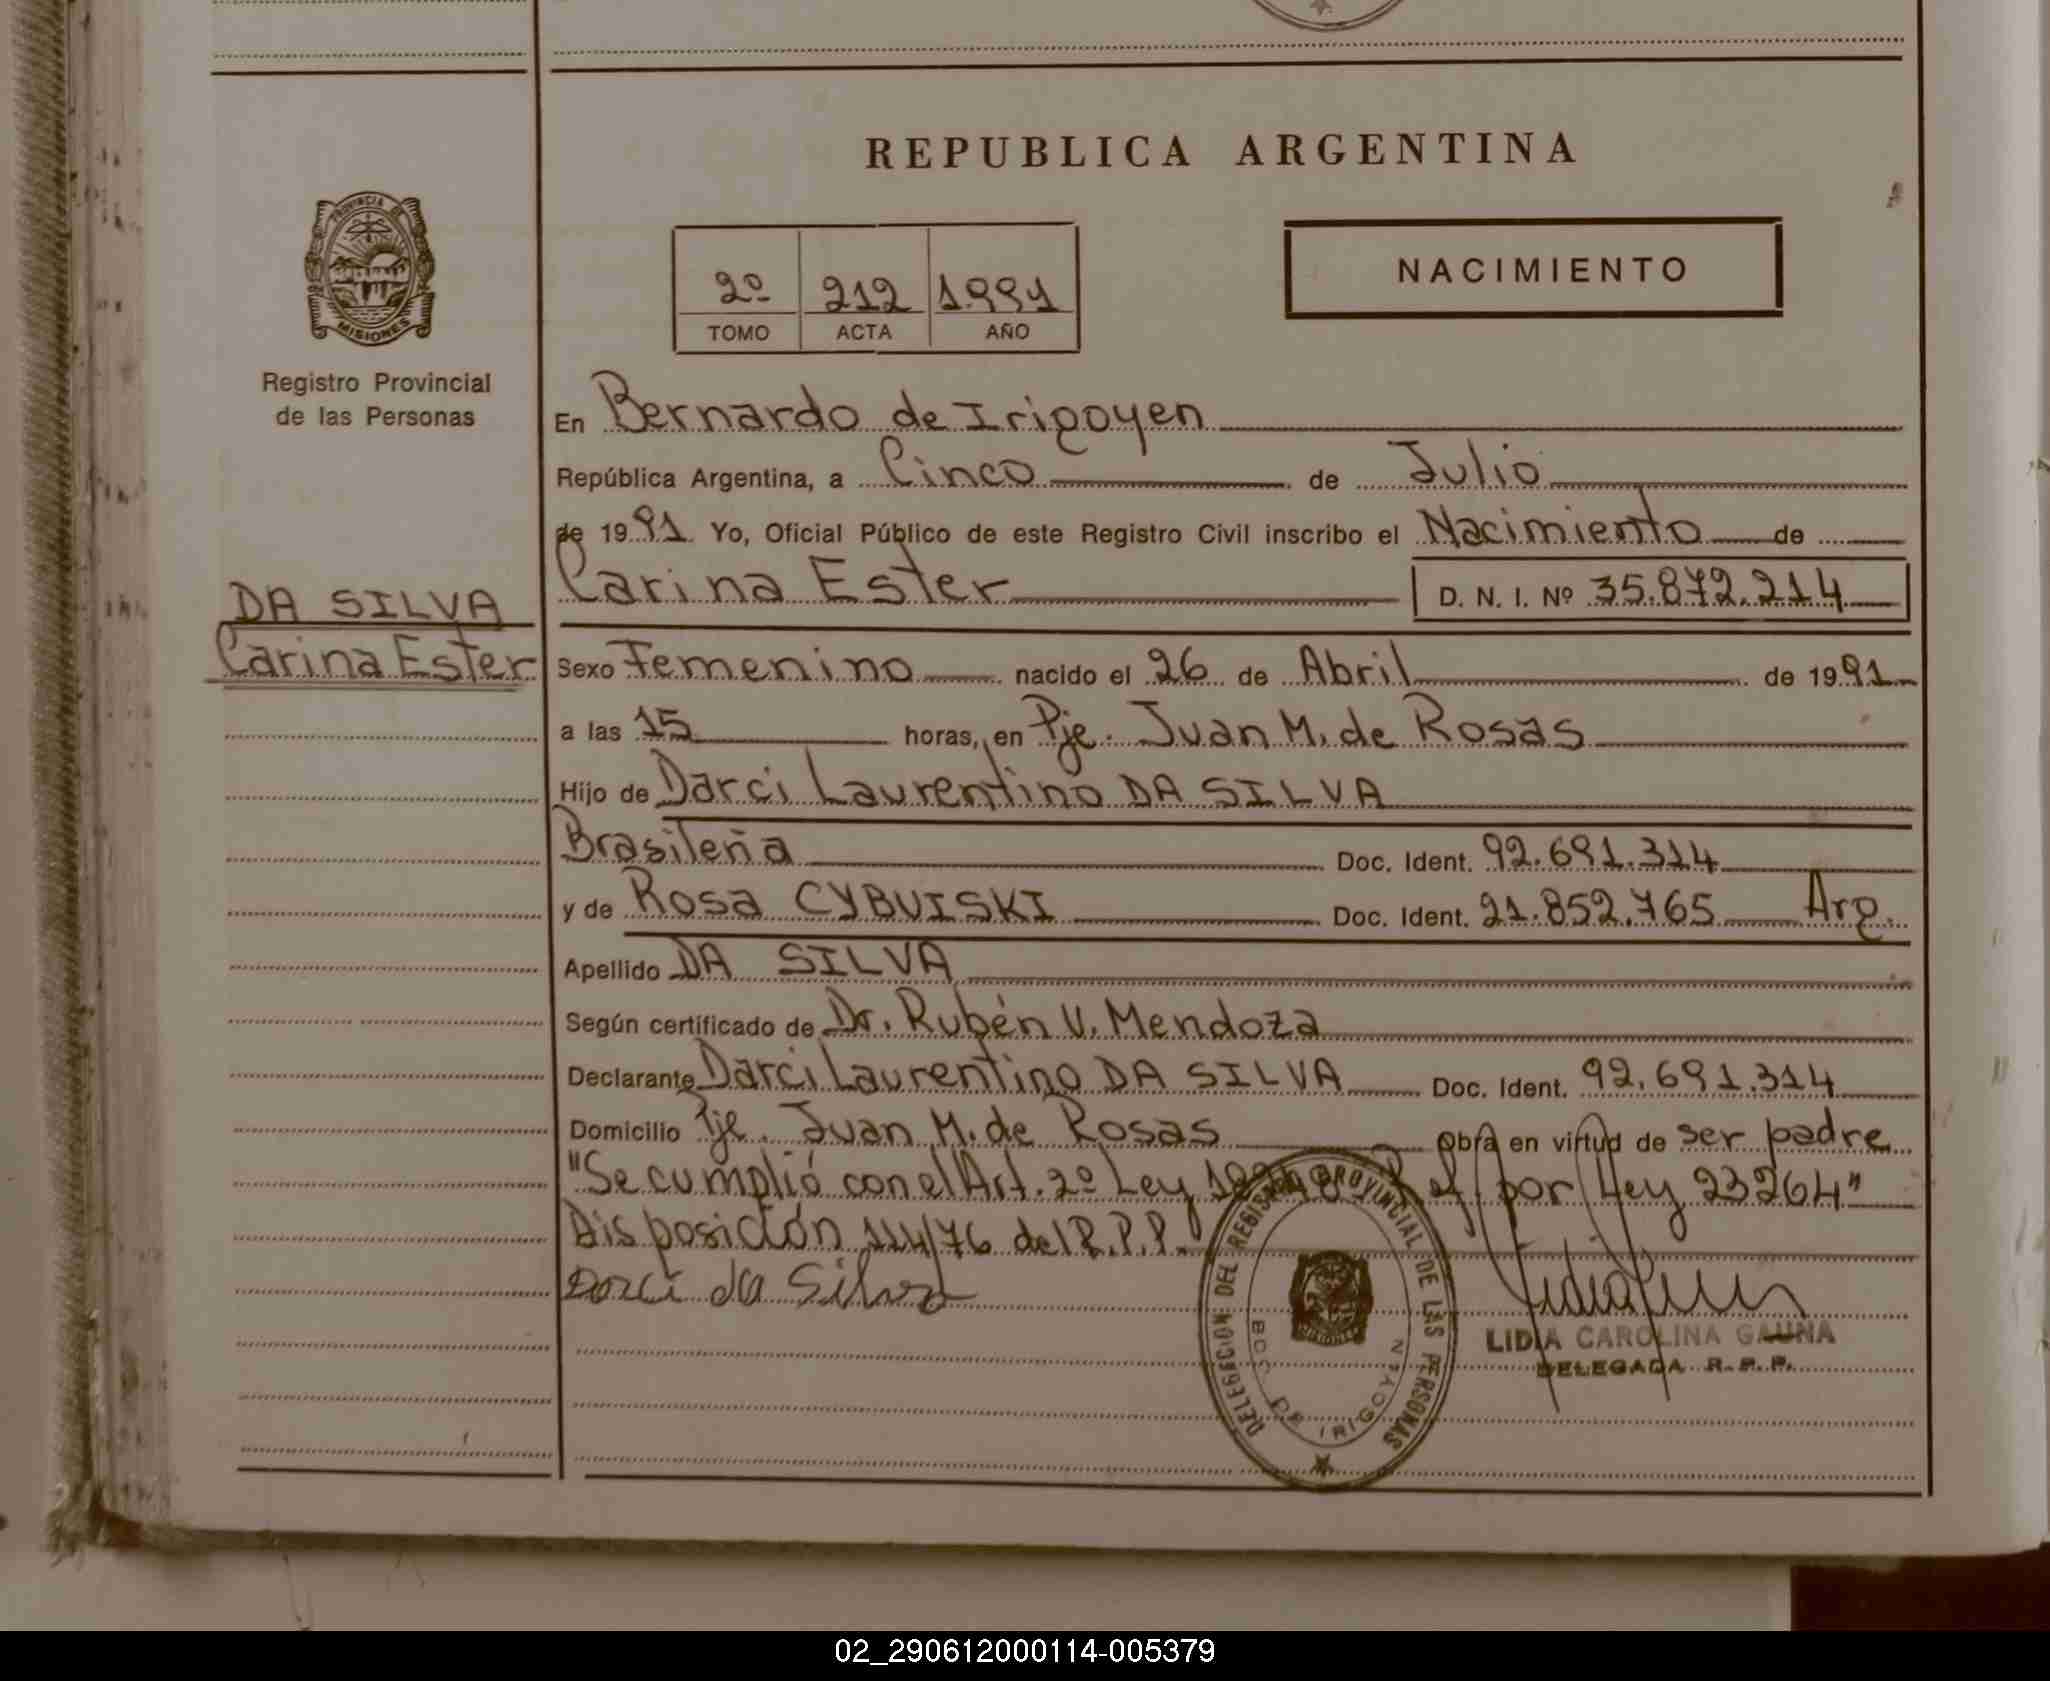 REPUBLICA ARGENTINA
PROVINCIA DE
MISIONES
Registro Provincial
de las Personas
2º 212 1.991
TOMO ACTA AÑO
NACIMIENTO
En Bernardo de Irigoyen
República Argentina, a Cinco de Julio
de 19 91 Yo, Oficial Público de este Registro Civil inscribo el Nacimiento de
DA SILVA
Carina Ester
Carina Ester D. N. I. Nº 35.872.214
Sexo Femenino nacido el 26 de Abril de 19 91
a las 15 horas, en Pje. Juan M. de Rosas
Hijo de Darci Laurentino DA SILVA
Brasileña Doc. Ident. 92.691.314
y de Rosa CYBUISKI Doc. Ident. 21.852.765 Arg.
Apellido DA SILVA
Según certificado de Dr. Rubén V. Mendoza
Declarante Darci Laurentino DA SILVA Doc. Ident. 92.691.314
Domicilio Pje. Juan M. de Rosas Obra en virtud de ser padre
"Se cumplió con el Art. 2º Ley Ref por Ley 23264"
Disposición 114/76 del R.P.P.
Darci da Silva
DELEGACION DEL REGISTRO PROVINCIAL DE LAS PERSONAS
BDO. DE IRIGOYEN
LIDIA CAROLINA GAUNA
DELEGADA R. P. P.
02_290612000114-005379